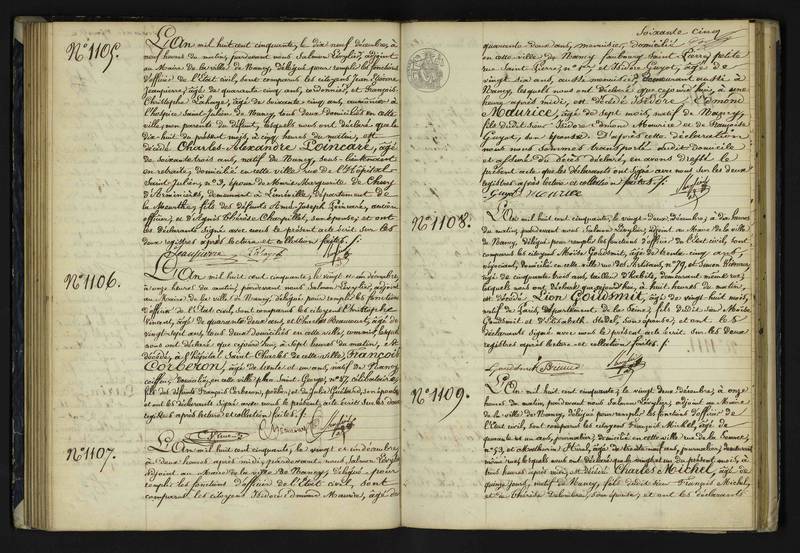 N°1105.
L'An mil huit cent cinquante, le dix neuf décembre, à
neuf heures du matin, pardevant nous Salmon Lévylier, adjoint
au Maire de la ville de Nancy, délégué pour remplir les fonctions
d'officier de l'Etat civil, sont comparus les citoyens Jean Etienne
Jeaupierre, âgé de quarante cinq ans, cordonnier, et François
Christophe Lahaye, âgé de soixante cinq ans, à
l'hospice Saint Julien de Nancy, tous deux domiciliés en cette
ville, non parents du défunt, lesquels nous ont déclaré que le
dix-huit du présent mois, à cinq heures du matin, est
décédé Charles Alexandre Poincaré, âgé
de soixante trois ans, natif de Nancy, sous-lieutenant
en retraite, domicilié en cette ville rue de l'hôpital
Saint Julien, n°3, époux de Marie Marguerite de
demeurant à Lunéville, département de
la Meurthe, fils des défunts Aimé Joseph Poincaré, ancien
officier, et d'Agnès Thérèse Champillot, son épouse; et ont
les déclarants signé avec nous le présent acte écrit sur les
deux registres après lecture et collation faites./.
Jeaupierre Lahaye
N°1106.
L'An mil huit cent cinquante, le vingt et un décembre,
à onze heures du matin, pardevant nous Salmon Lévylier, adjoint
au Maire de la ville de Nancy, délégué pour remplir les fonctions
d'officier de l'Etat civil, sont comparus les citoyens Christophe
âgé de quarante deux ans, et Charles Beaucourt, âgé de
vingt sept ans, tous deux domiciliés en cette ville, lesquels
nous ont déclaré que cejourd'hui, à sept heures du matin, est
décédé, à l'hôpital Saint Charles de cette ville, François
Corberon, âgé de trente et un ans, natif de Nancy,
coiffeur, domicilié en cette ville place Saint Georges, n°87, célibataire,
fils des défunts François Corberon, et de Julie son épouse;
et ont les déclarants signé avec nous le présent acte écrit sur les deux
registres après lecture et collation faites./.
N°1107.
L'An mil huit cent cinquante, le vingt et un décembre,
à deux heures après midi, pardevant nous Salmon Lévylier,
adjoint au Maire de la ville de Nancy, délégué pour
remplir les fonctions d'officier de l'Etat civil, sont
comparus les citoyens Isidore Edmond Maurice, âgé de
Soixante cinq
quarante deux ans, menuisier, domicilié
en cette ville de Nancy faubourg Saint Pierre, petite
rue Saint Pierre, n°2, et Isidore Guyot, âgé de
vingt six ans, aussi menuisier, demeurant aussi à
Nancy, lesquels nous ont déclaré que cejourd'hui, à une
heure après midi, est décédé Isidore Edmond
Maurice, âgé de sept mois, natif de Nancy,
fils dudit sieur Isidore Edmond Maurice et de Françoise
Guyot, son épouse. D'après cette déclaration
nous nous sommes transporté audit domicile
et assuré du décès déclaré, en avons dressé le
présent acte que les déclarants ont signé avec nous sur les deux
registres après lecture et collation faites./.
Guyot Maurice
N°1108.
L'An mil huit cent cinquante, le vingt deux décembre, à dix heures
du matin, pardevant nous Salmon Lévylier, adjoint au Maire de la ville
de Nancy, délégué pour remplir les fonctions d'officier de l'Etat civil, sont
comparus les citoyens Moïse Goudsmit, âgé de trente cinq ans,
négociant, domicilié en cette ville rue des Artisans, n°79, et Simon
âgé de cinquante trois ans, tailleur d'habits, demeurant même rue,
lesquels nous ont déclaré que cejourd'hui, à huit heures du matin,
est décédé Léon Goudsmit, âgé de vingt huit mois,
natif de Paris, département de la Seine, fils dudit sieur Moïse
Goudsmit et d'Elisabeth son épouse; et ont les
déclarants signé avec nous le présent acte écrit sur les deux
registres après lecture et collation faites./.
Goudsmit
N°1109.
L'An mil huit cent cinquante, le vingt deux décembre, à onze
heures du matin, pardevant nous Salmon Lévylier, adjoint au Maire
de la ville de Nancy, délégué pour remplir les fonctions d'officier de
l'Etat civil, sont comparus les citoyens François Michel, âgé de
quarante et un ans, journalier, domicilié en cette ville rue de la
n°53, et Mathurin âgé de trente ans, journalier, demeurant
même rue, lesquels nous ont déclaré que le vingt et un du présent mois, à
huit heures après midi, est décédé Charles Michel, âgé de
quinze jours, natif de Nancy, fils dudit sieur François Michel,
et de Thérèse son épouse; et ont les déclarants